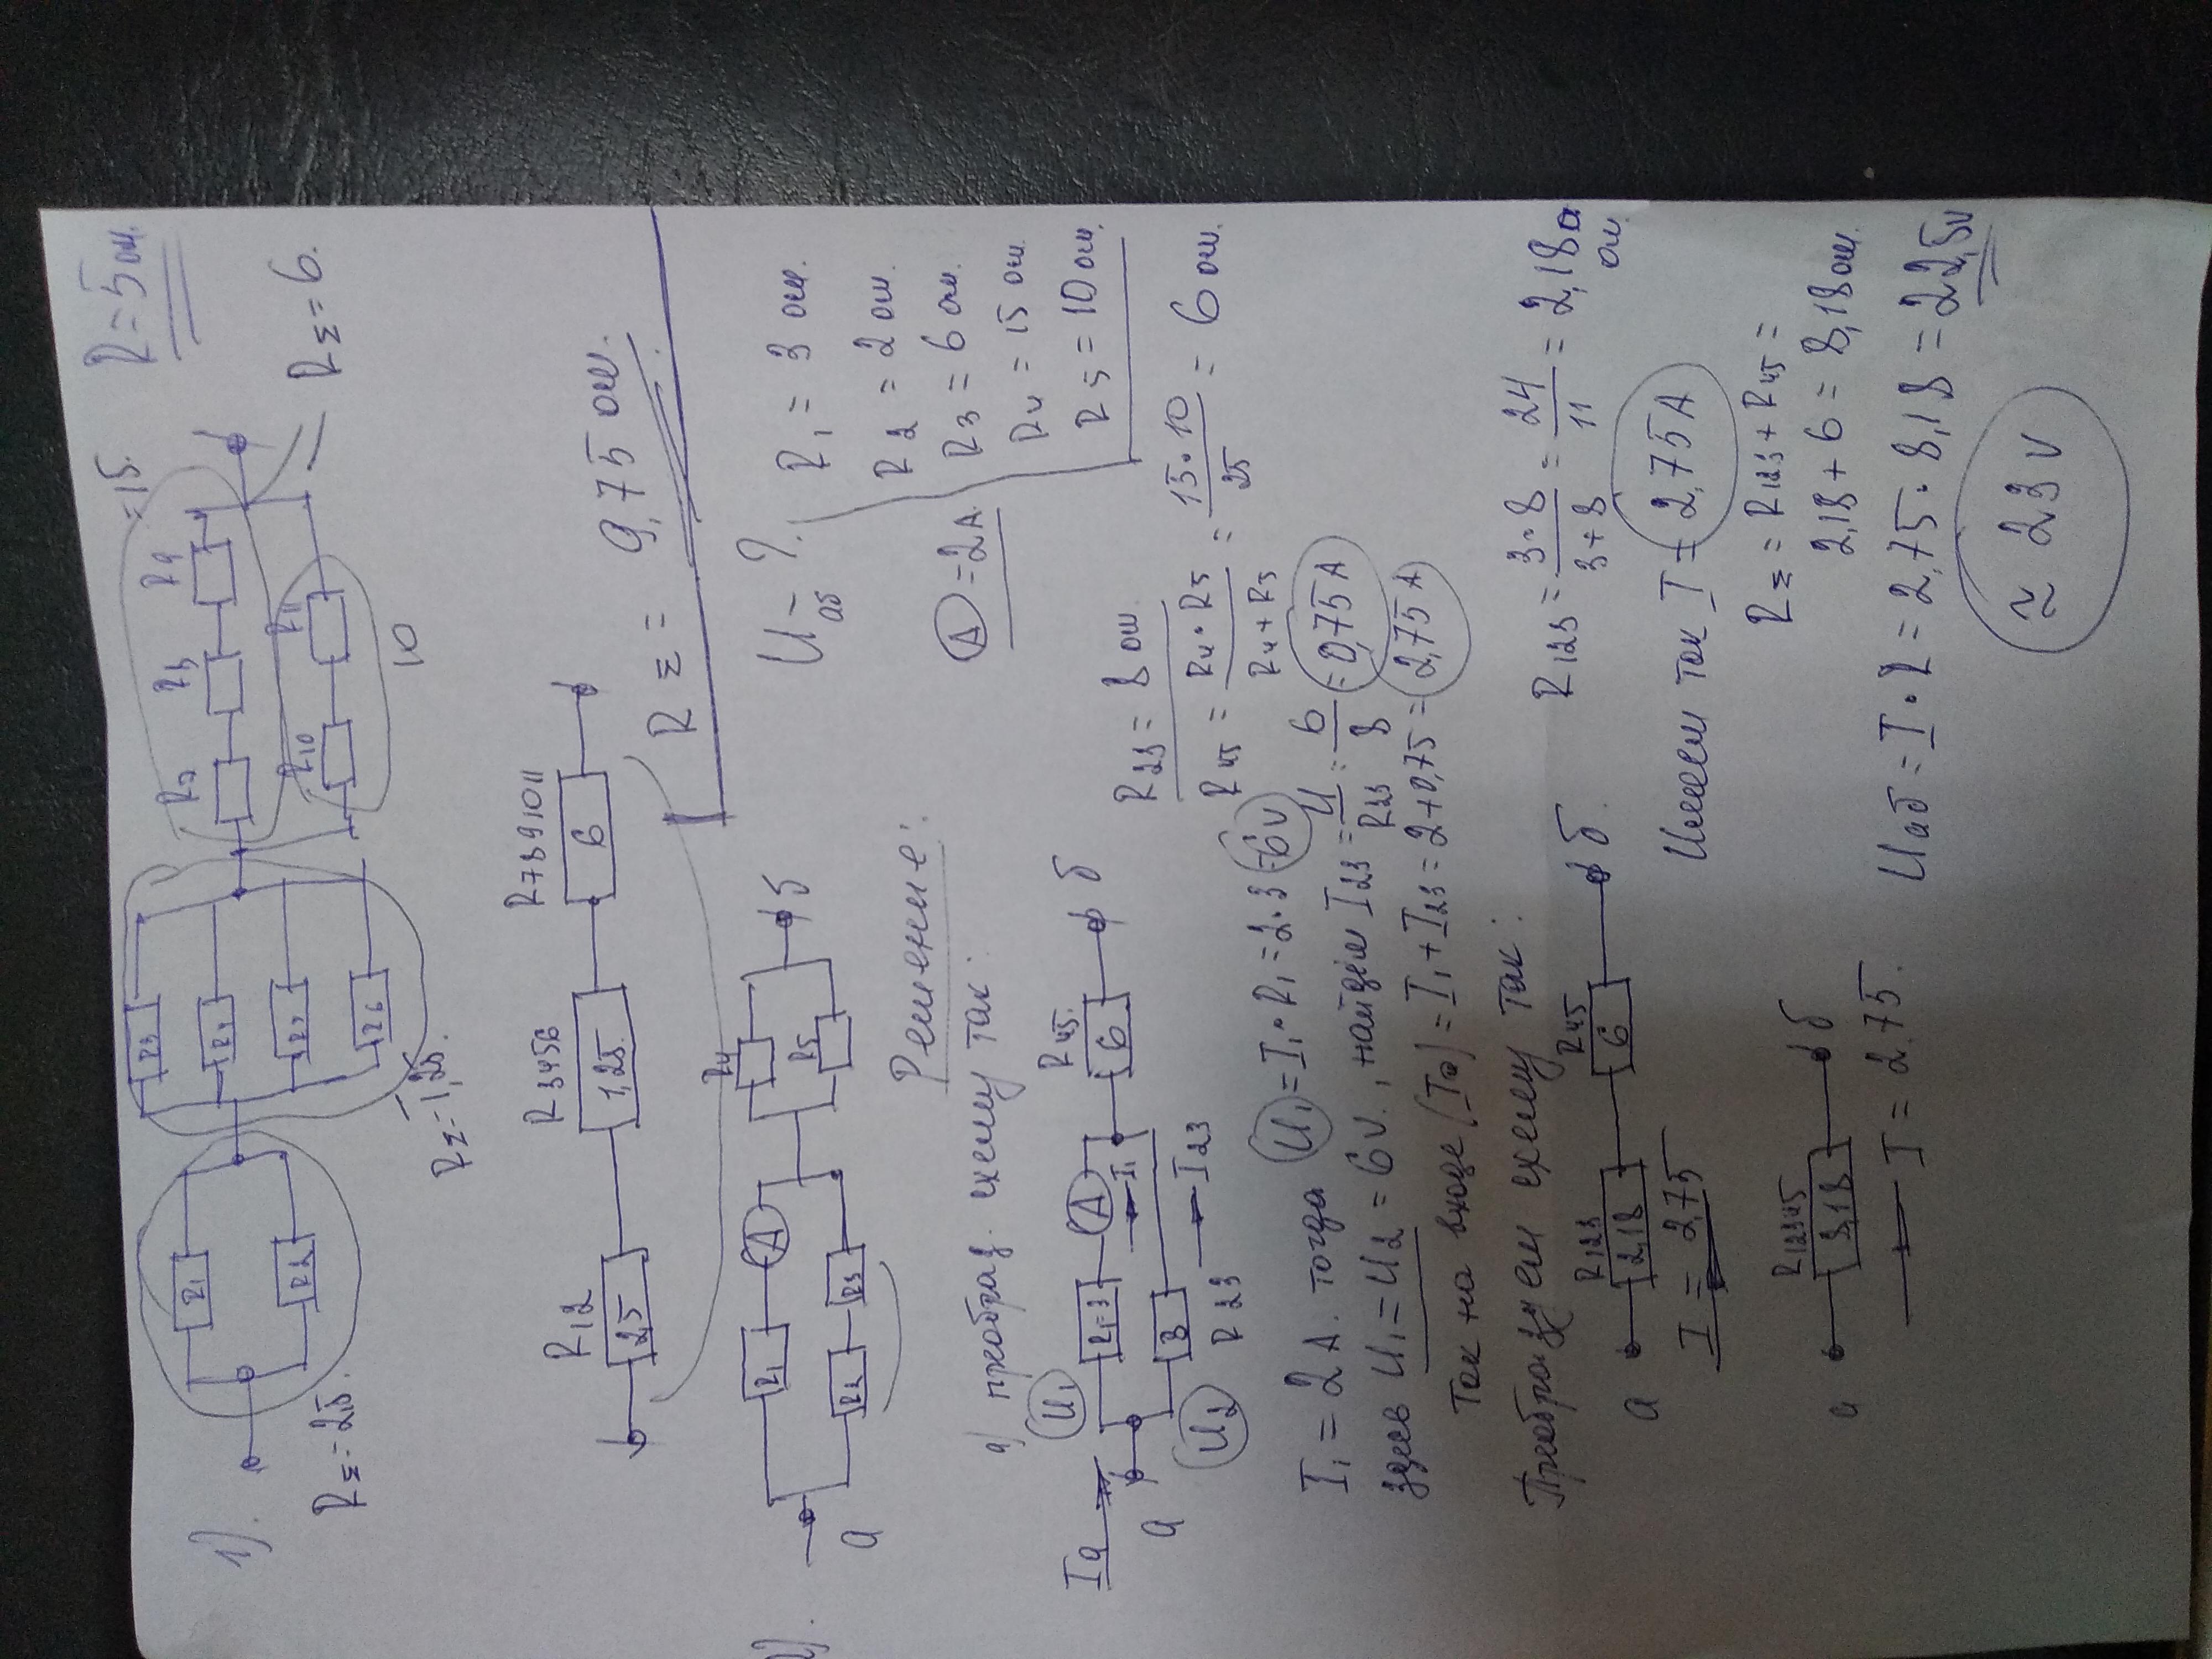 R = 5 ом.
1).
R1
R2
R3
R4
R5
R6
R7
R8
R9
= 15.
R10
R11
10
RΣ = 2,5.
RΣ = 1,25.
RΣ = 6.
R12
2,5
R3456
1,25
R7891011
6
RΣ = 9,75 ом.
2).
а
R1
A
R2
R3
R4
R5
б
Uаб - ?
R1 = 3 ом.
R2 = 2 ом.
R3 = 6 ом.
R4 = 15 ом.
R5 = 10 ом.
A = 2A.
Решение:
а) преобраз. схему так:
Iа
а
U1
R1=3
A
I1
U2
8
R23
I23
R45.
6
б
R23 = 8 ом
R45 = R4 • R5 / R4 + R5 = 15 • 10 / 25 = 6 ом.
I1 = 2 А. тогда U1 = I1 • R1 = 2 • 3 = 6v
здесь U1 = U2 = 6v., найдём I23 = U / R23 = 6 / 8 = 0,75A
Ток на входе (Iа) = I1 + I23 = 2 + 0,75 = 2,75A
Преобразуем схему так:
а
R123
2,18
R45
6
б.
I = 2,75
R123 = 3 • 8 / 3 + 8 = 24 / 11 = 2,18 ом.
Имеем ток I = 2,75A
RΣ = R123 + R45 =
2,18 + 6 = 8,18 ом.
а
R12345
8,18
б
I = 2,75.
Uаб = I • R = 2,75 • 8,18 = 22,5v
≈ 23 v